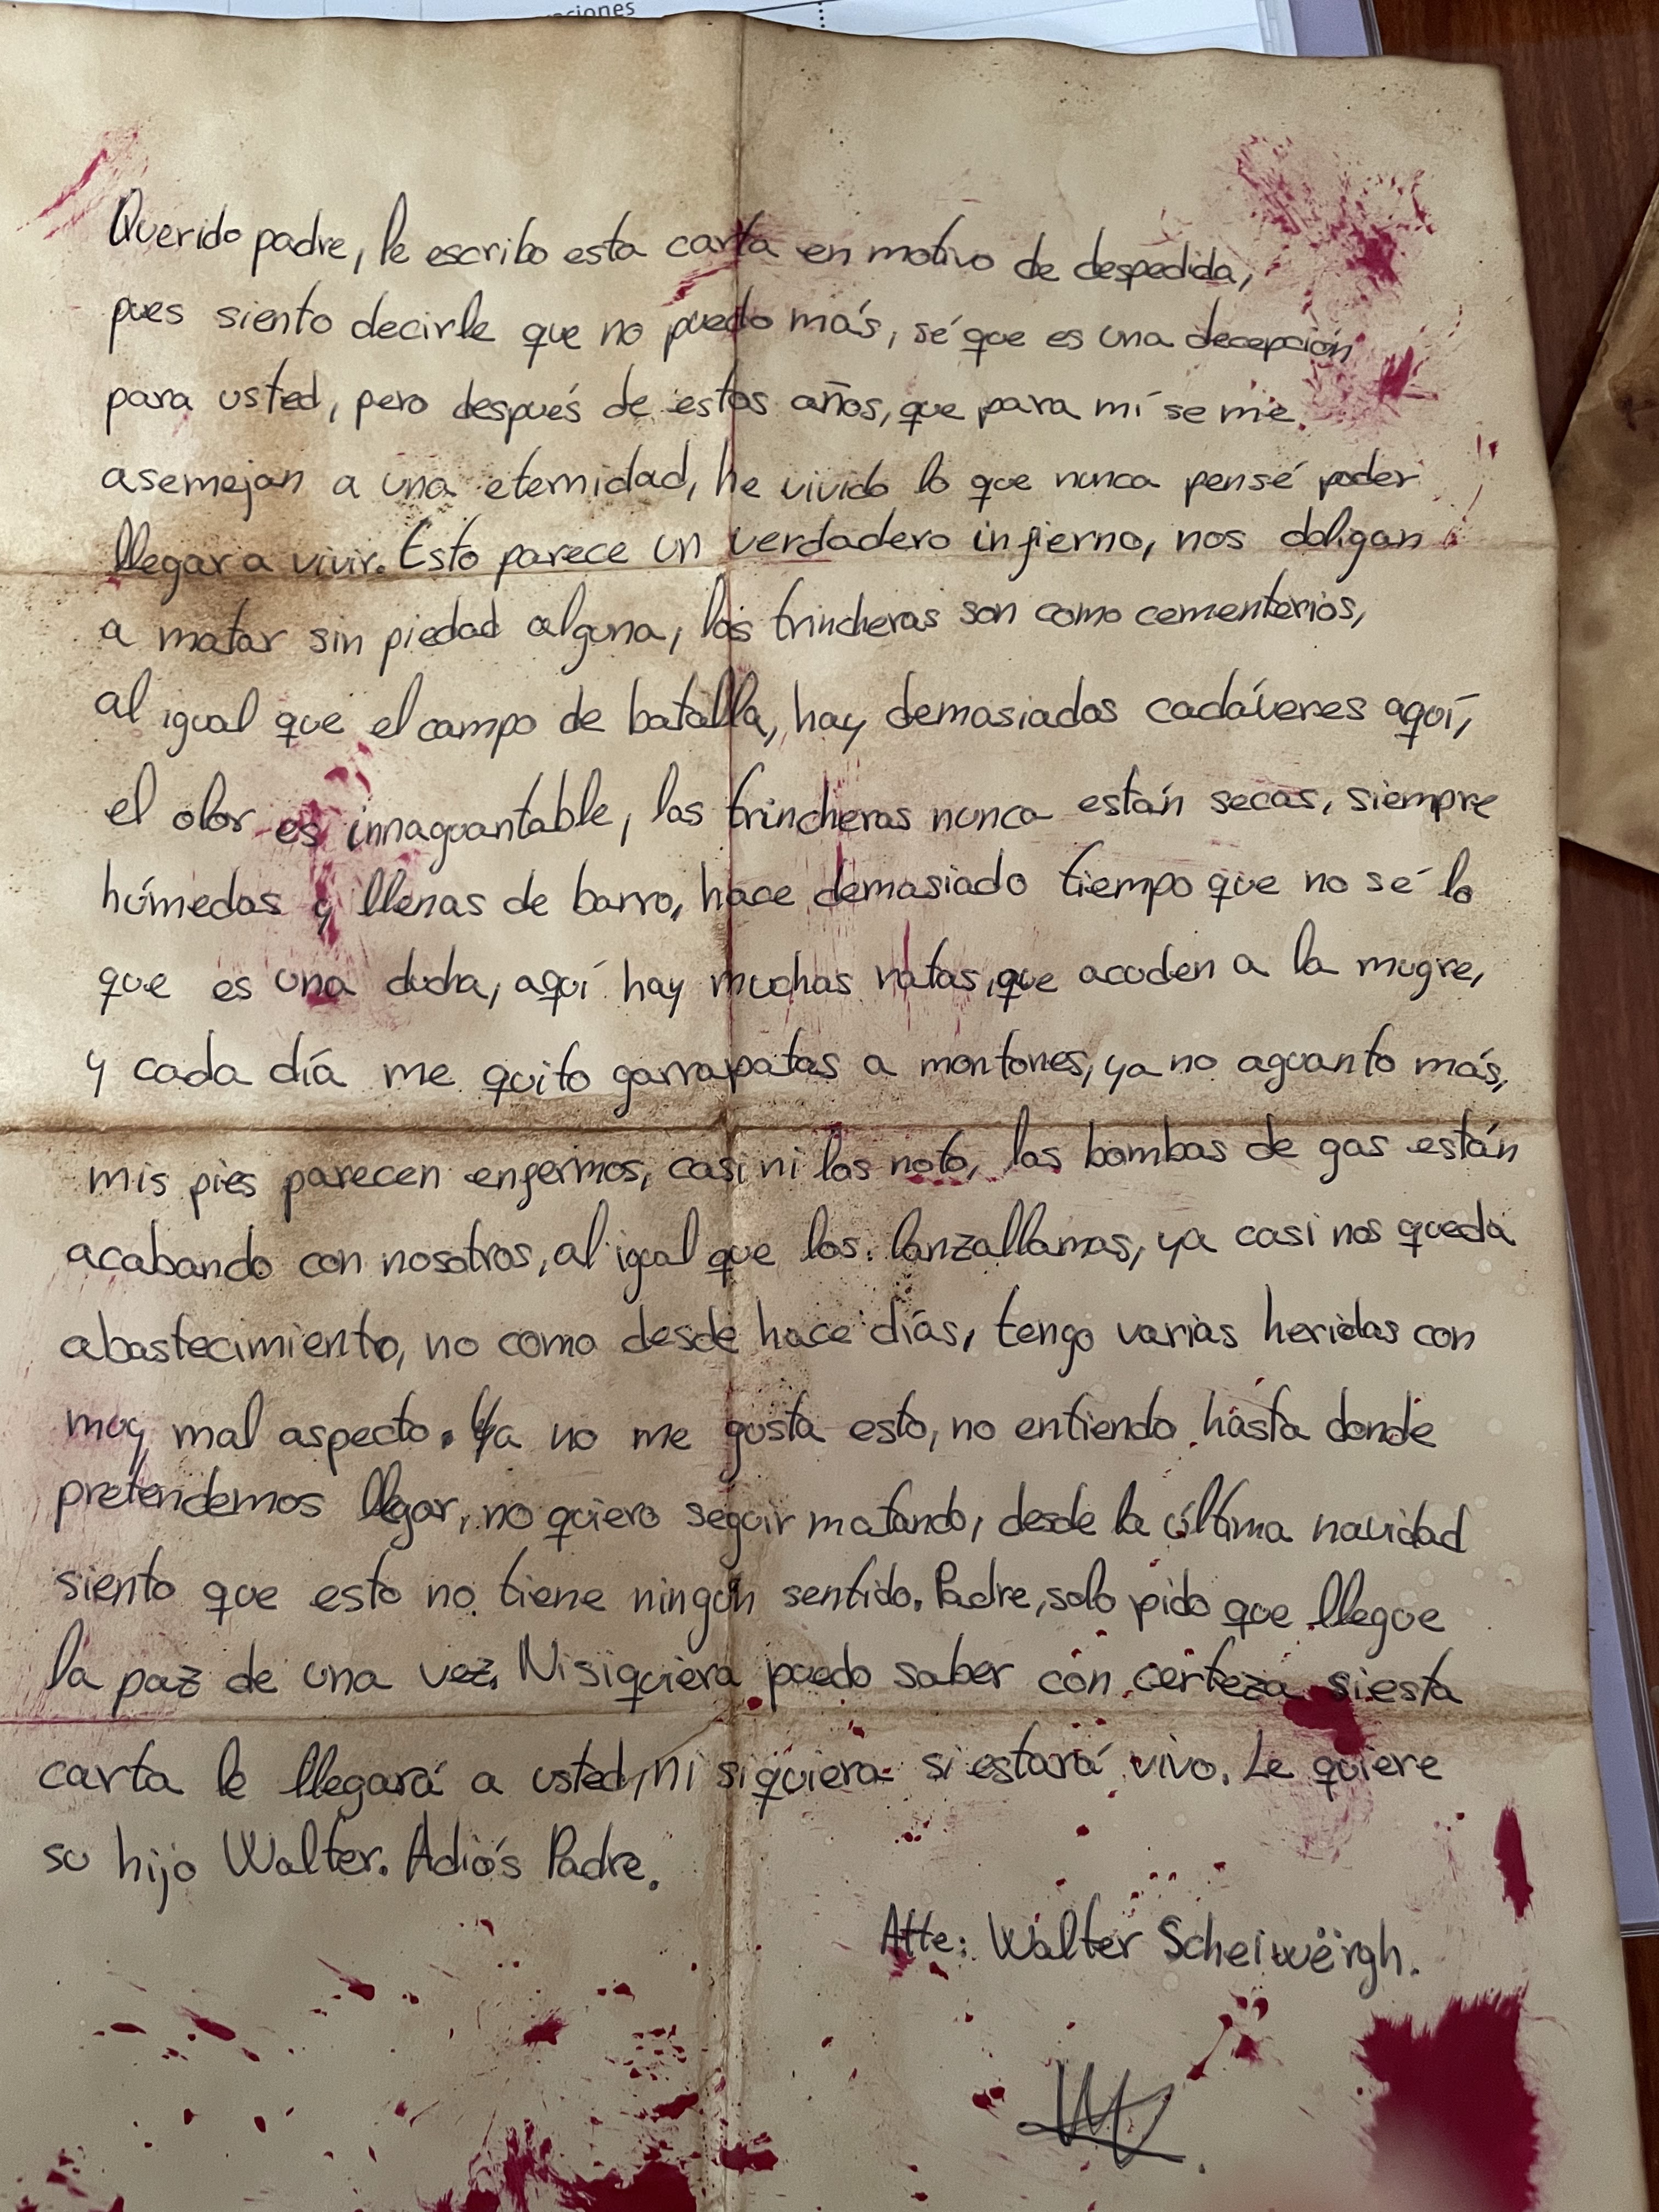 ciones
Querido padre, le escribo esta carta en motivo de despedida,
pues siento decirle que no puedo más, sé que es una decepción
para usted, pero después de estos años, que para mí se me
asemejan a una eternidad, he vivido lo que nunca pensé poder
llegar a vivir. Esto parece un verdadero infierno, nos obligan
a matar sin piedad alguna, las trincheras son como cementerios,
al igual que el campo de batalla, hay demasiados cadáveres aquí,
el olor es innaguantable, las trincheras nunca están secas, siempre
húmedas y llenas de barro, hace demasiado tiempo que no sé lo
que es una ducha, aquí hay muchas ratas, que acuden a la mugre,
y cada día me quito garrapatas a montones, ya no aguanto más,
mis pies parecen enfermos, casi ni los noto, las bombas de gas están
acabando con nosotros, al igual que los lanzallamas, ya casi nos queda
abastecimiento, no como desde hace días, tengo varias heridas con
muy mal aspecto. Ya no me gusta esto, no entiendo hasta donde
pretendemos llegar, no quiero seguir matando, desde la última navidad
siento que esto no tiene ningún sentido. Padre, solo pido que llegue
la paz de una vez. Ni siquiera puedo saber con certeza si esta
carta le llegará a usted, ni siquiera si estará vivo. Le quiere
su hijo Walter. Adiós Padre.
Atte: Walter Scheiwërgh.